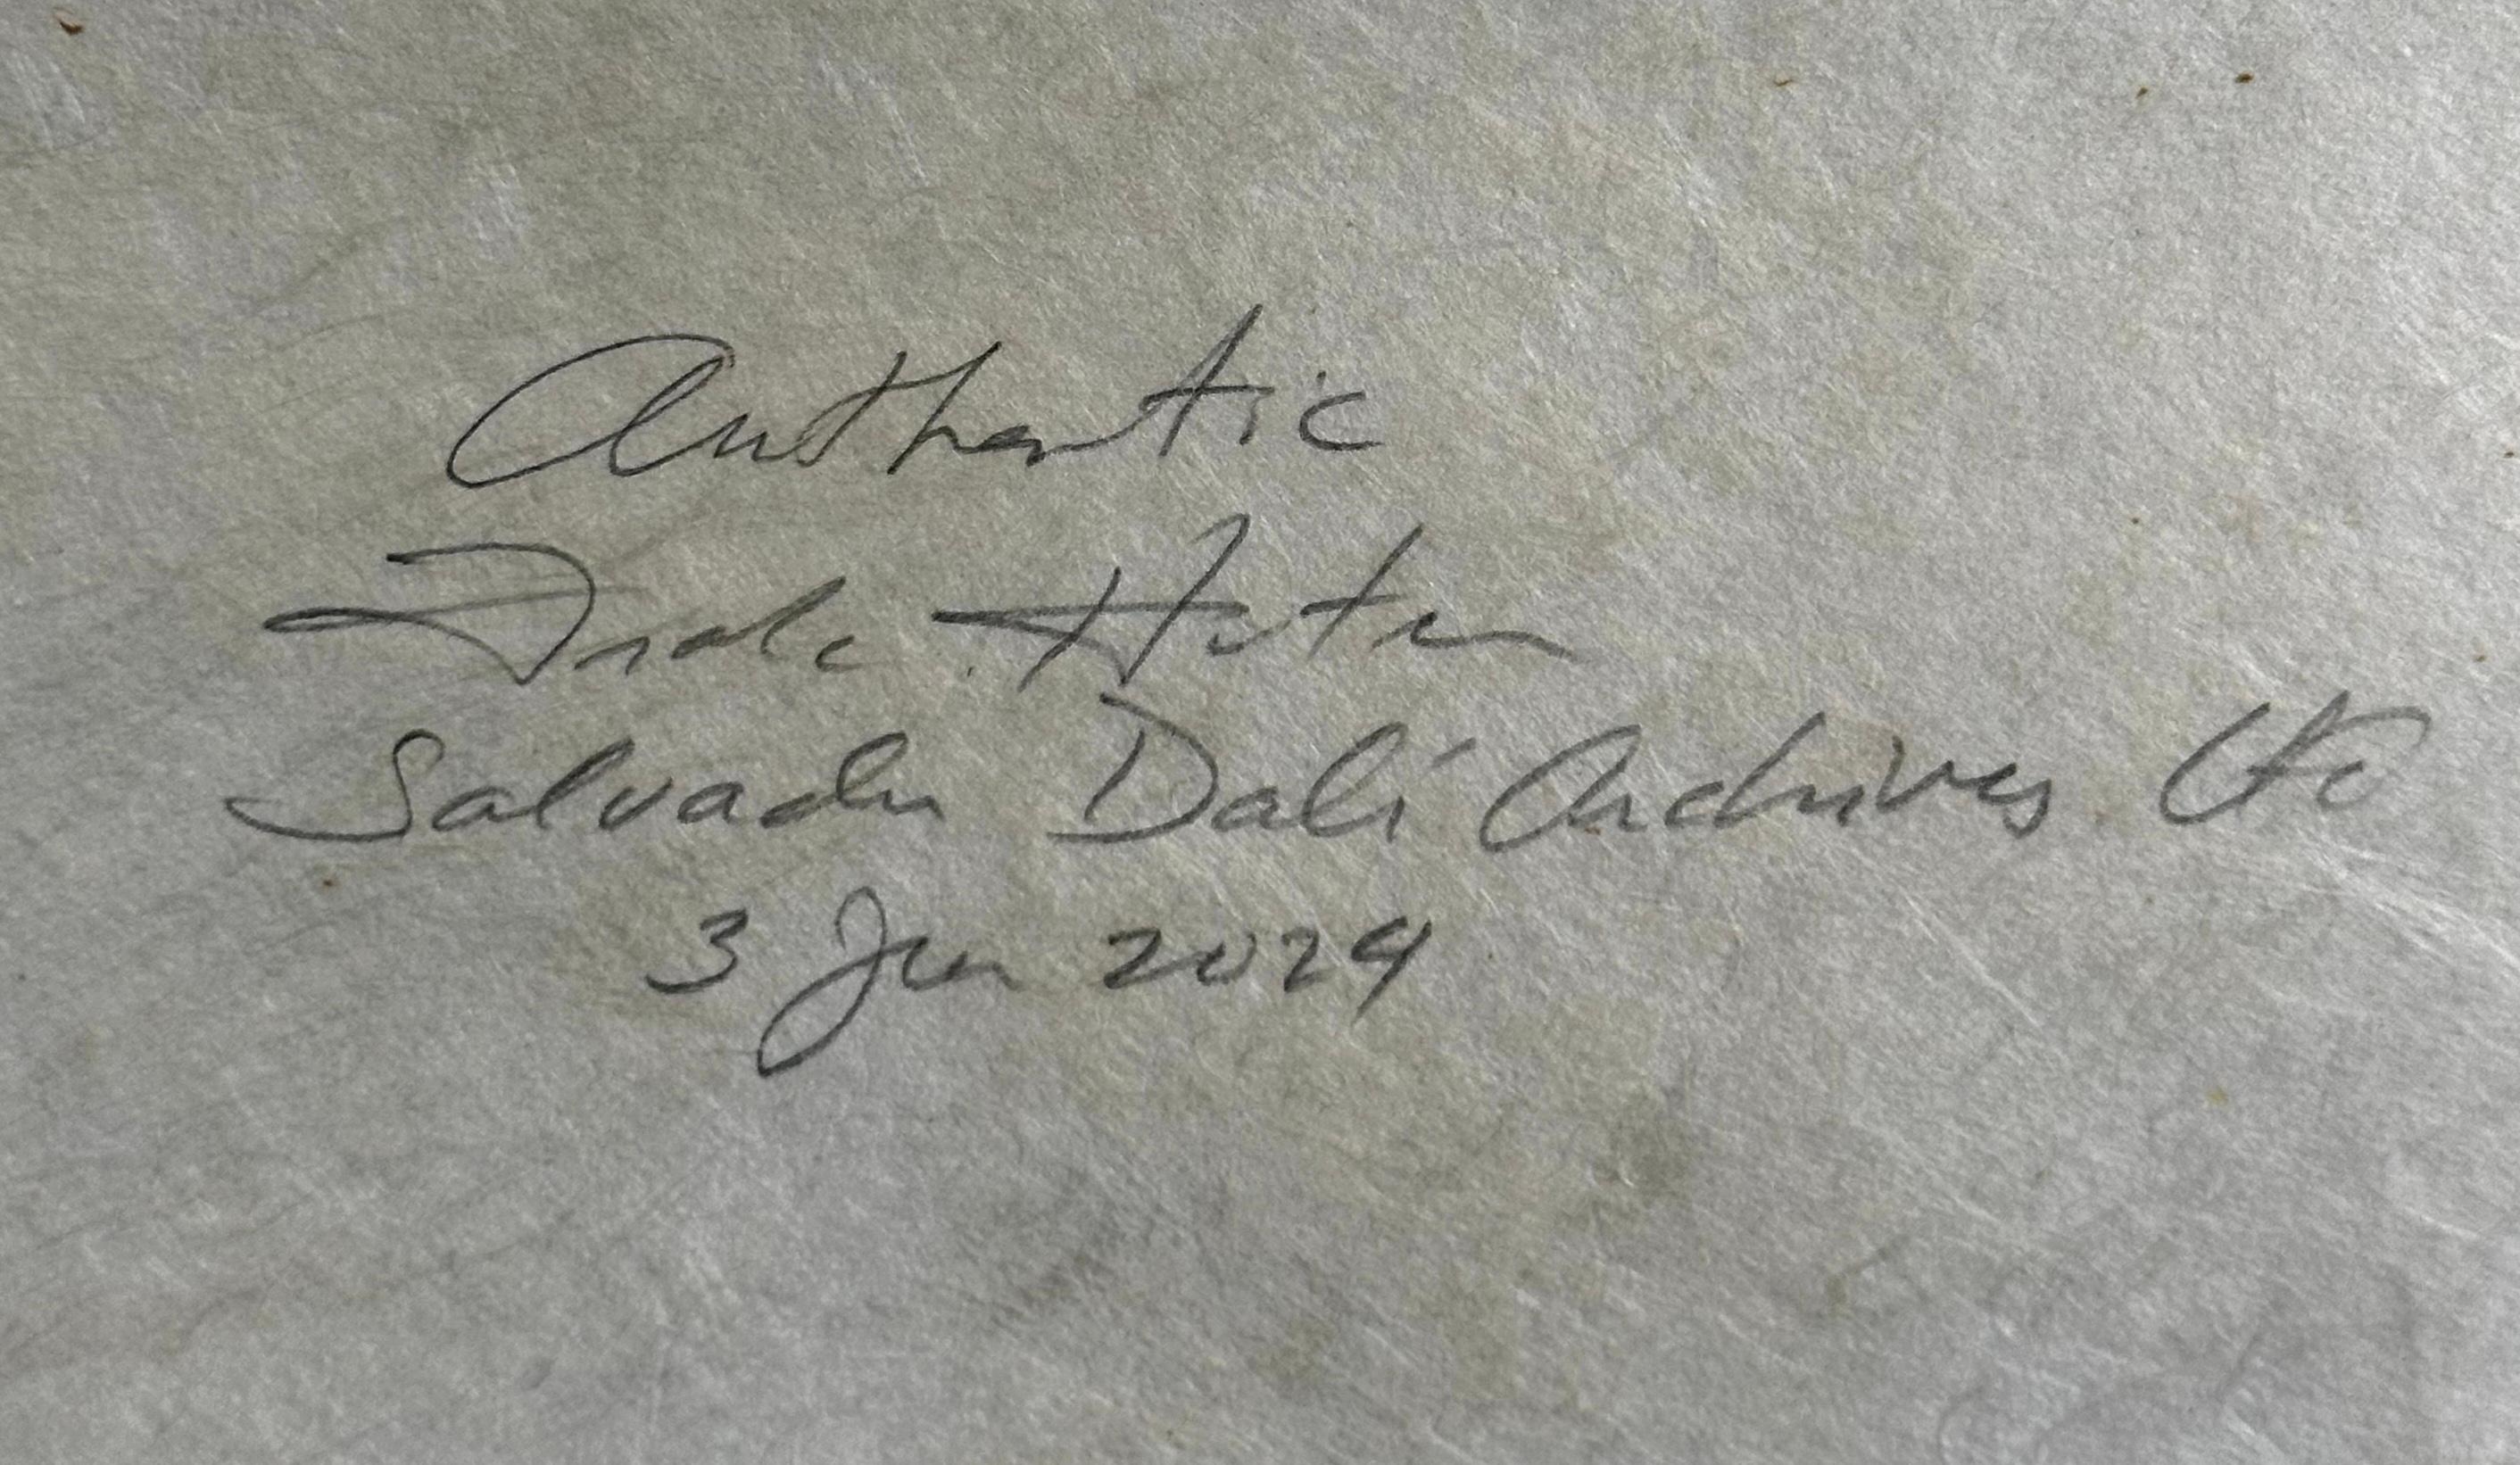 Authentic
Frank Hunter
Salvador Dalí Archives Ltd
3 Jun 2024